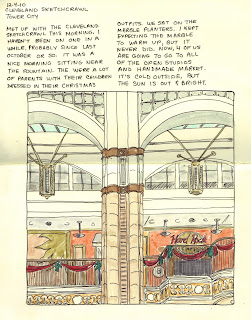 12·4·10
CLEVELAND SKETCHCRAWL
TOWER CITY
MET UP WITH THE CLEVELAND
SKETCHCRAWL THIS MORNING. I
HAVEN'T BEEN ON ONE IN A
WHILE, PROBABLY SINCE LAST
OCTOBER OR SO. IT WAS A
NICE MORNING SITTING NEAR
THE FOUNTAIN. THERE WERE A LOT
OF PARENTS WITH THEIR CHILDREN
DRESSED IN THEIR CHRISTMAS
OUTFITS. WE SAT ON THE
MARBLE PLANTERS, I KEPT
EXPECTING THE MARBLE
TO WARM UP, BUT IT
NEVER DID. NOW, 4 OF US
ARE GOING TO GO TO ALL
OF THE OPEN STUDIOS
AND HANDMADE MARKET.
IT'S COLD OUTSIDE, BUT
THE SUN IS OUT & BRIGHT.
Hard Rock